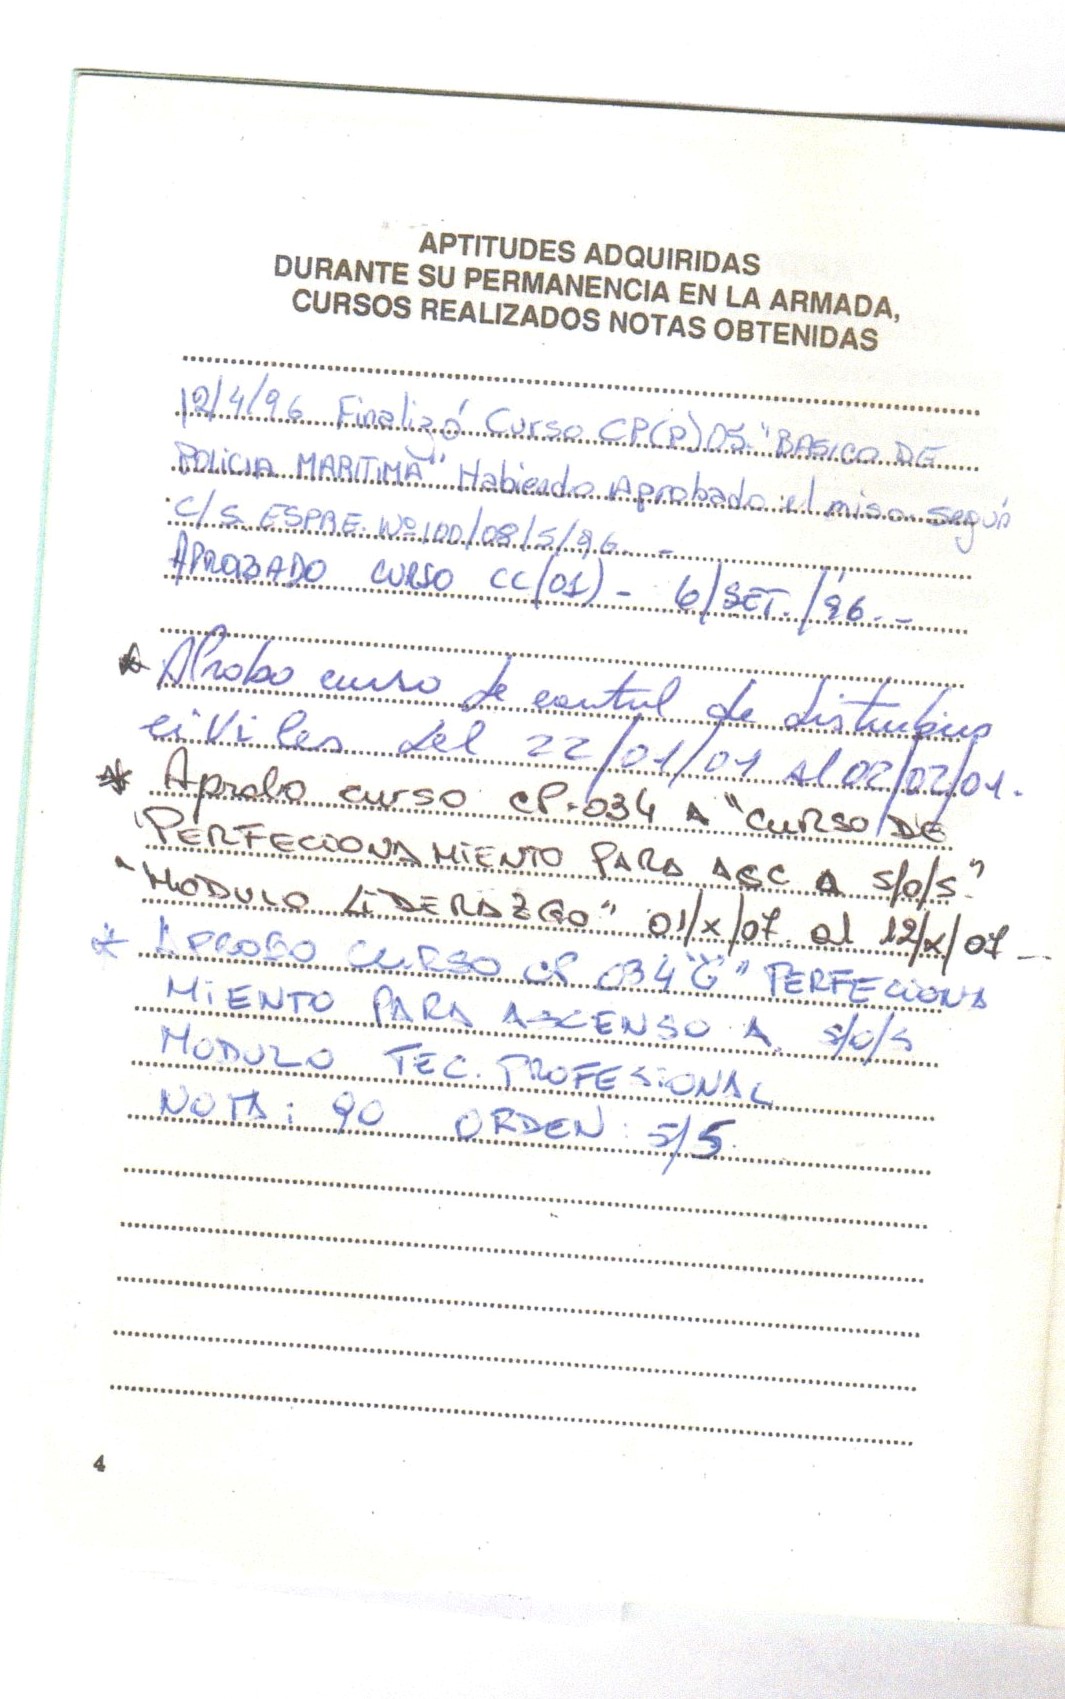 APTITUDES ADQUIRIDAS
DURANTE SU PERMANENCIA EN LA ARMADA,
CURSOS REALIZADOS NOTAS OBTENIDAS
12/4/96 Finalizó Curso CP(P)05 "BASICO DE
POLICIA MARITIMA" Habiendo Aprobado el miso según
C/S ESPRE. Nº 100/08/5/96. -
APROBADO CURSO CC(01) - 6/SET./96. -
* Aprobo curso de control de disturbios
civiles del 22/01/01 al 02/02/01.
* Aprobo curso CP-034 A "CURSO DE
PERFECIONAMIENTO PARA ASC A S/O/S"
"MODULO LIDERAZGO" 01/X/07 al 12/X/07 -
* APROBO CURSO CP 034 "G" PERFECIONA
MIENTO PARA ASCENSO A S/O/S
MODULO TEC. PROFESIONAL
NOTA: 90 ORDEN: 5/5.
4